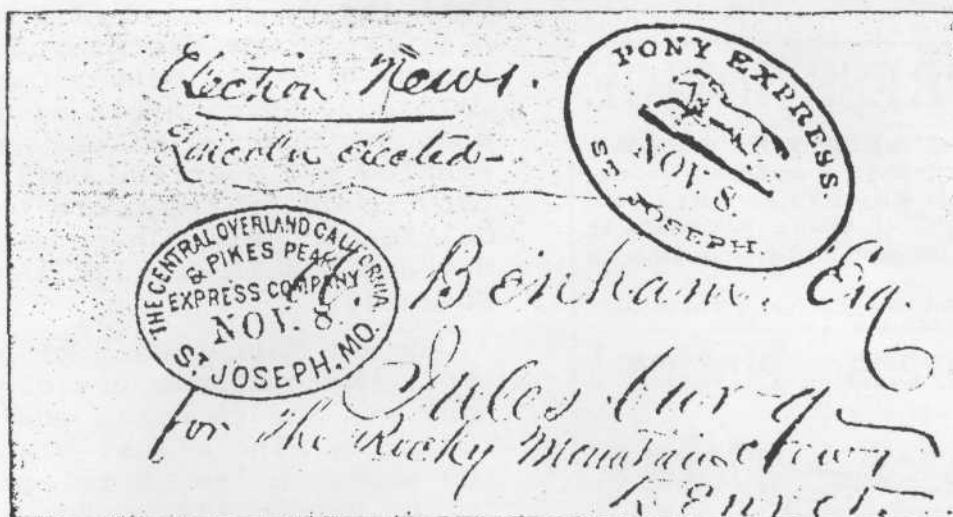 Election News.
Lincoln elected—
PONY EXPRESS
NOV. 8.
ST JOSEPH.
THE CENTRAL OVERLAND CALIFORNIA
& PIKES PEAK
EXPRESS COMPANY
NOV. 8
ST. JOSEPH. MO.
Benham. Esq.
Julesburg
for the Rocky Mountain News
Denver.